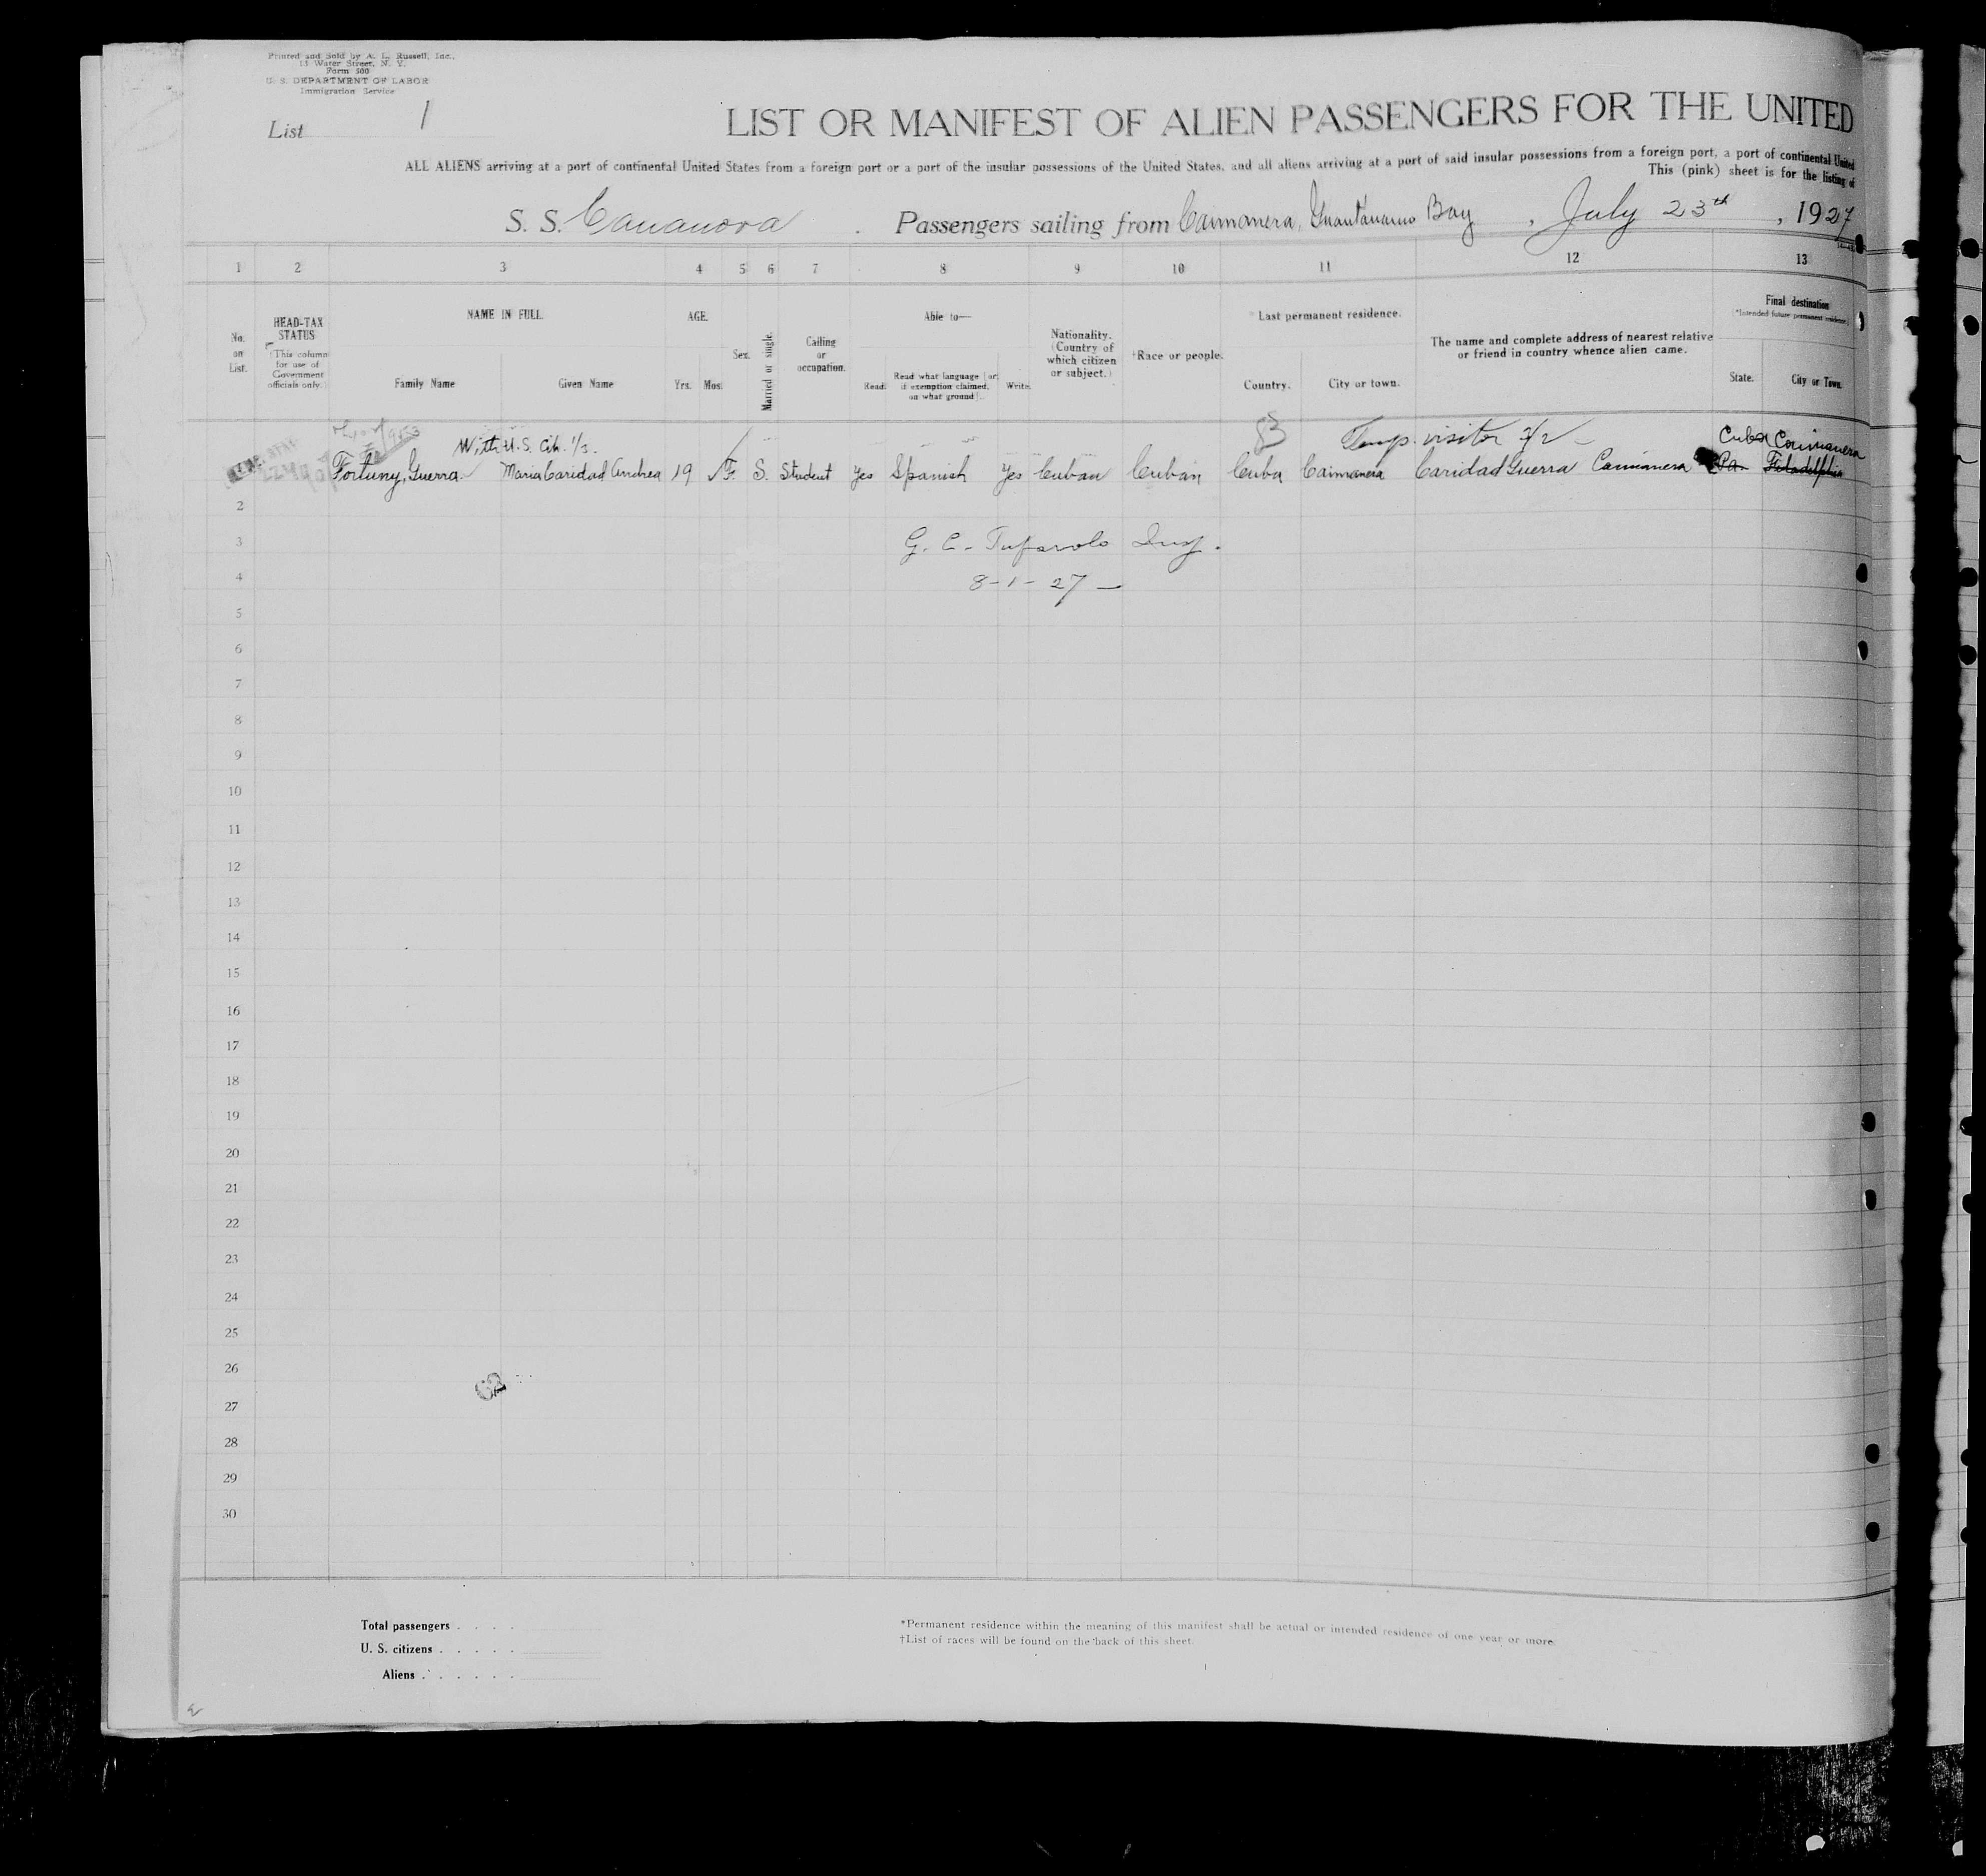 Printed and Sold by A. L. Russell, Inc.,
Water Street, N. Y.
Form 500
U. S. DEPARTMENT OF LABOR
Immigration Service
List 1
LIST OR MANIFEST OF ALIEN PASSENGERS FOR THE UNITED
ALL ALIENS arriving at a port of continental United States from a foreign port or a port of the insular possessions of the United States, and all aliens arriving at a port of said insular possessions from a foreign port, a port of continental United
This (pink) sheet is for the listing of
S. S. Passengers sailing from Caimanera, Guantanamo Bay, July 23th, 1927
1 2 3 4 5 6 7 8 9 10 11 12 13
No. on List.
HEAD-TAX STATUS (This column for use of Government officials only.)
NAME IN FULL
Family Name Given Name
AGE.
Yrs. Mos.
Sex.
Married or single.
Calling or occupation.
Able to—
Read. Read what language [or if exemption claimed, on what ground]. Write.
Nationality. (Country of which citizen or subject.)
†Race or people.
*Last permanent residence.
Country. City or town.
The name and complete address of nearest relative or friend in country whence alien came.
Final destination
*Intended future permanent residence
State. City or Town.
With U.S. Cit. 1/3. Temp. visitor 3/2 — Cuba Caimanera
Fortuny, Guerra Maria Caridad Andrea 19 F. S. Student Yes Spanish Yes Cuban Cuban Cuba Caimanera Caridad Guerra Caimanera Pa. Filadelphia
2
3 G. C. Insp.
4 8-1-27 —
5
6
7
8
9
10
11
12
13
14
15
16
17
18
19
20
21
22
23
24
25
26
27
28
29
30
Total passengers . . . .
U. S. citizens . . . . .
Aliens . . . . . .
*Permanent residence within the meaning of this manifest shall be actual or intended residence of one year or more.
†List of races will be found on the back of this sheet.